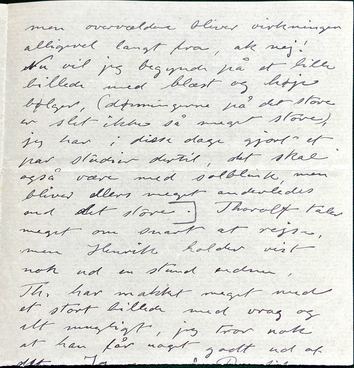 men overvældende bliver virkningen
alligevel langt fra, ak nej!
Nu vil jeg begynde på et lille
billede med blæst og høje
bølger, (dønningerne på det store
er slet ikke så meget store)
jeg har i disse dage gjort et
par studier dertil, det skal
også være med solblink, men
bliver ellers meget anderledes
end det store. Thorolf taler
meget om snart at rejse,
men Henrik holder vist
nok ud en stund endnu.
Th. har makket meget med
et stort billede med vrag og
alt muligt, jeg tror nok
at han får noget godt ud af